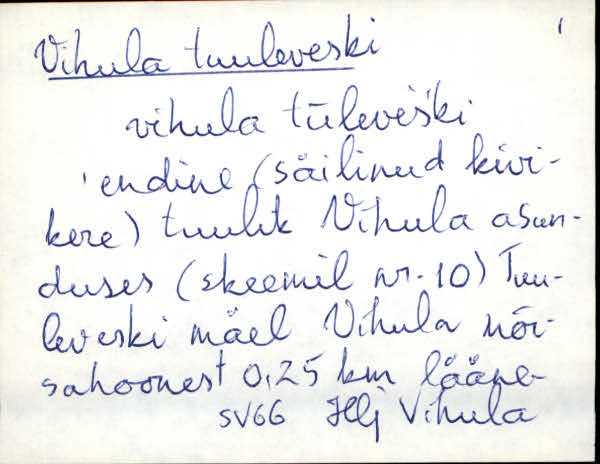 1
Vihula tuuleveski
vihula tūleveški
'endine (säilinud kivi-
kere) tuulik Vihula asun-
duses (skeemil nr. 10) Tuu-
leveski mäel Vihula mõi-
sahoonest 0,25 km lääne-
SV66 Hlj Vihula